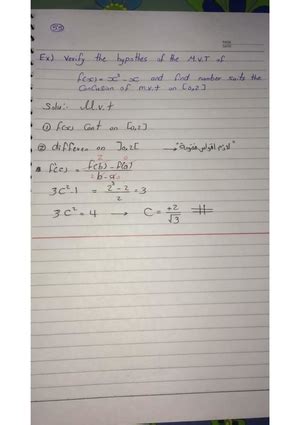 Ex) Verify the hypothes of the M.V.T of
f(x) = x³ - x and find number suits the
Conclusion of m.v.t on [0,2]
Solu:- M.v.t
① f(x) Cont on [0,2]
② differen on ]0,2[ → "لازم اقواس مفتوحة"
f'(c) = f(b) - f(a) / b - a
3C² - 1 = 2³ - 2 / 2 = 3
3C² = 4 → C = +2 / √3 #